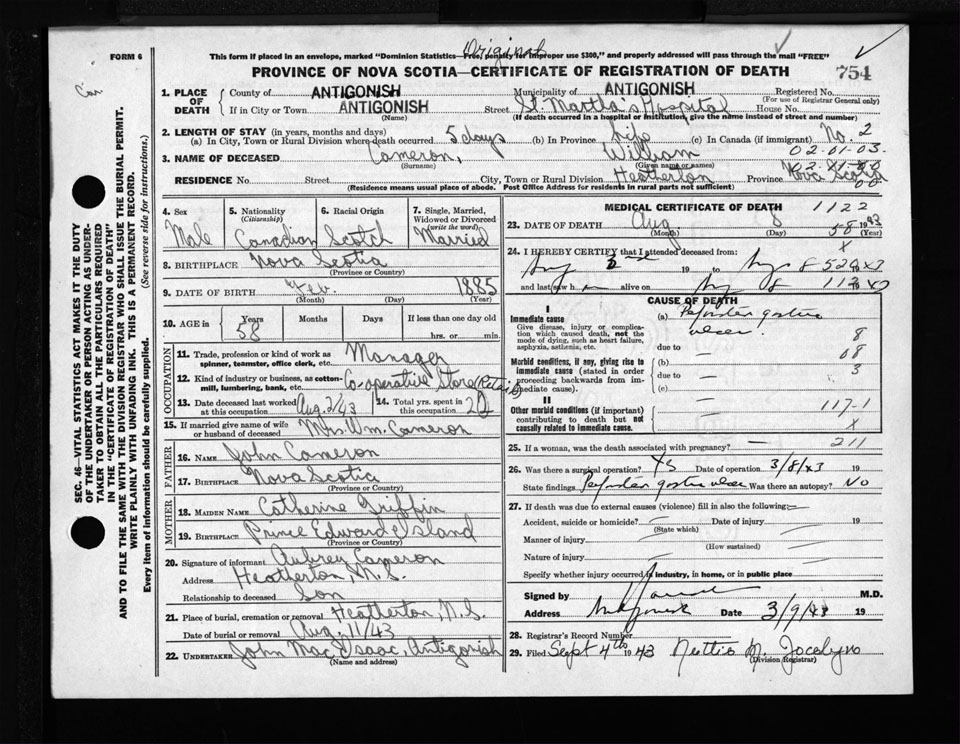 Original
FORM 6
This form if placed in an envelope, marked "Dominion Statistics—Free, penalty for improper use $300," and properly addressed will pass through the mail "FREE"
PROVINCE OF NOVA SCOTIA—CERTIFICATE OF REGISTRATION OF DEATH
754
1. PLACE OF DEATH
County of ANTIGONISH Municipality of ANTIGONISH Registered No.
(For use of Registrar General only)
If in City or Town ANTIGONISH Street St. Martha's Hospital House No.
(Name) (If death occurred in a hospital or institution, give the name instead of street and number)
2. LENGTH OF STAY (in years, months and days)
(a) In City, Town or Rural Division where death occurred 5 days (b) In Province life (c) In Canada (if immigrant) No. 2
02-01-03.
3. NAME OF DECEASED Cameron, William
(Surname) (Given name or names)
RESIDENCE No. Street City, Town or Rural Division Heatherton Province Nova Scotia
(Residence means usual place of abode. Post Office Address for residents in rural parts not sufficient)
SEC. 46—VITAL STATISTICS ACT MAKES IT THE DUTY
OF THE UNDERTAKER OR PERSON ACTING AS UNDER-
TAKER TO OBTAIN ALL THE PARTICULARS REQUIRED
IN THE "CERTIFICATE OF REGISTRATION OF DEATH"
AND TO FILE THE SAME WITH THE DIVISION REGISTRAR WHO SHALL ISSUE THE BURIAL PERMIT.
WRITE PLAINLY WITH UNFADING INK. THIS IS A PERMANENT RECORD.
Every item of information should be carefully supplied. (See reverse side for instructions.)
4. Sex Male
5. Nationality (Citizenship) Canadian
6. Racial Origin Scotch
7. Single, Married, Widowed or Divorced (write the word) Married
8. BIRTHPLACE Nova Scotia
(Province or Country)
9. DATE OF BIRTH Feb. 1885
(Month) (Day) (Year)
10. AGE in Years 58 Months Days If less than one day old
hrs. or min.
OCCUPATION
11. Trade, profession or kind of work as spinner, teamster, office clerk, etc. Manager
12. Kind of industry or business, as cotton-mill, lumbering, bank, etc. Co-operative Store (Retail)
13. Date deceased last worked at this occupation Aug. 2/43
14. Total yrs. spent in this occupation
15. If married give name of wife or husband of deceased Mrs. Wm. Cameron
FATHER
16. NAME John Cameron
17. BIRTHPLACE Nova Scotia
(Province or Country)
MOTHER
18. MAIDEN NAME Catherine Griffin
19. BIRTHPLACE Prince Edward Island
(Province or Country)
20. Signature of informant Aubrey Cameron
Address Heatherton, N.S.
Relationship to deceased Son
21. Place of burial, cremation or removal Heatherton, N.S.
Date of burial or removal Aug. 11/43
22. UNDERTAKER John MacIsaac, Antigonish
(Name and address)
MEDICAL CERTIFICATE OF DEATH 1122
23. DATE OF DEATH Aug 8 1943
(Month) (Day) (Year)
58
24. I HEREBY CERTIFY that I attended deceased from:
19 to Aug 8 1943
and last saw h alive on Aug 8 1943
CAUSE OF DEATH
I
Immediate cause (a)
Give disease, injury or complication which caused death, not the mode of dying, such as heart failure, asphyxia, asthenia, etc.
ulcer
due to
8
08
3
Morbid conditions, if any, giving rise to immediate cause (stated in order proceeding backwards from immediate cause).
(b)
due to
(c)
II
Other morbid conditions (if important) contributing to death but not causally related to immediate cause.
117-1
X
25. If a woman, was the death associated with pregnancy? — 211
26. Was there a surgical operation? Date of operation 3/8/43 19
State findings gastric ulcer Was there an autopsy? No
27. If death was due to external causes (violence) fill in also the following:—
Accident, suicide or homicide? Date of injury 19
(State which)
Manner of injury
(How sustained)
Nature of injury
Specify whether injury occurred in industry, in home, or in public place
Signed by M.D.
Address Antigonish Date 3/9/43 19
28. Registrar's Record Number
29. Filed Sept 4th 1943
(Division Registrar)